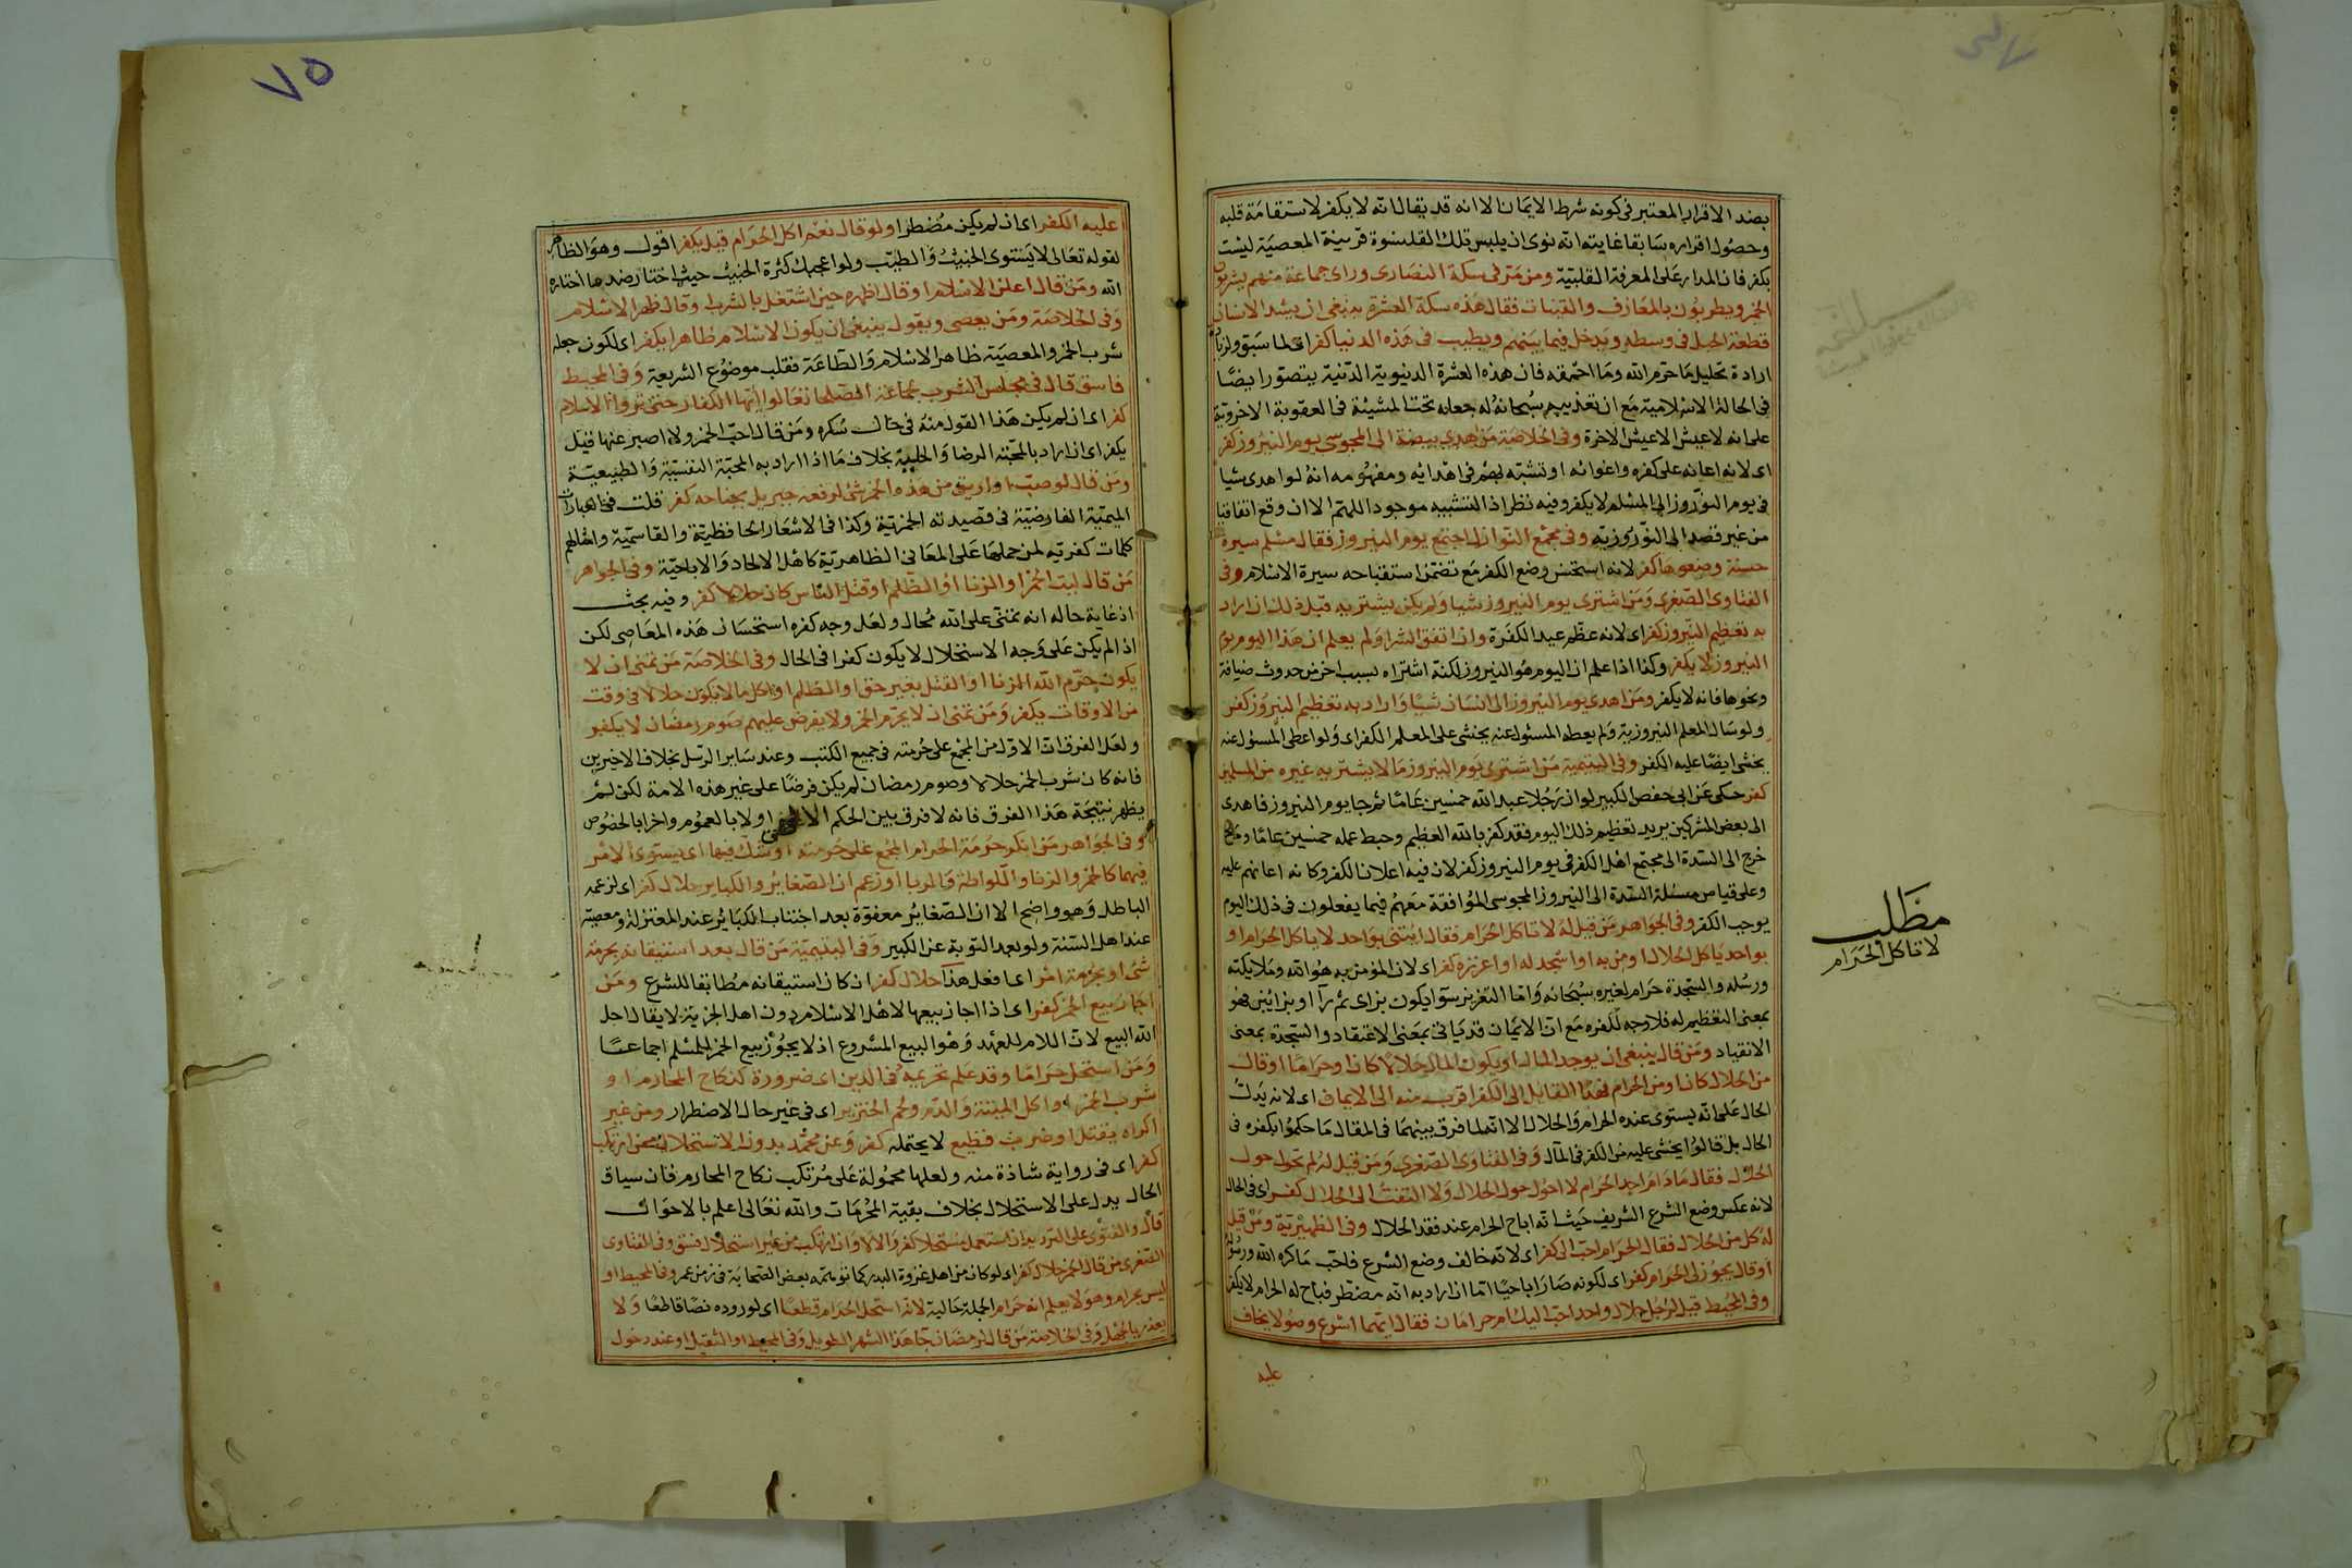 بضد الاقرار المعتبر فى كونه شرط الايمان الا انه قد يقال انه لا يكفر لاستقامة قلبه
وحصول اقراره سابقا غايته انه نوى ان يلبس تلك القلنسوة قرينة المعصية ليست
بكفر فان المدار على المعرفة القلبية ومن مر فى سكة النصارى وراى جماعة منهم يشربون
الخمر ويطربون بالمعازف والقينات فقال هذه سكة العشرة ينبغى ان يشد الانسان
قطعة الحبل فى وسطه ويدخل فيما بينهم ويطيب فى هذه الدنيا كفر اى لما سبق ولزيادة
ارادة تحليل ما حرم الله وما احمقه فان هذه العشرة الدنيوية الدنية يتصور ايضا
فى الحالة الاسلامية مع ان تعذيبهم سبحانه له جعله تحت المشيئة فى العقوبة الاخروية
على انه لا عيش الا عيش الاخرة وفى الخلاصة من اهدى بيضة الى المجوسى يوم النيروز كفر
اى لانه اعانه على كفره واغوائه او تشبه بهم فى اهدائه ومفهومه انه لو اهدى شيا
فى يوم النوروز الى المسلم لا يكفر وفيه نظر اذ التشبيه موجود اللهم الا ان وقع اتفاقيا
من غير قصد الى النوروزية وفى مجمع النوازل اجتمع يوم النيروز فقال مسلم سيرة
حسنة وضعوها كفر لانه استحسن وضع الكفر مع تضمن استقباحه سيرة الاسلام وفى
الفتاوى الصغرى ومن اشترى يوم النيروز شيا ولم يكن يشتريه قبل ذلك ان اراد
به تعظيم النيروز كفر اى لانه عظم عيد الكفرة وان اتفق الشرا ولم يعلم ان هذا اليوم يوم
النيروز لا يكفر وكذا اذا علم ان اليوم هو النيروز لكنه اشتراه بسبب اخر من حدوث ضيافة
ونحوها فانه لا يكفر ومن اهدى يوم النيروز الى انسان شيا واراد به تعظيم النيروز كفر
ولو سال المعلم النيروزية ولم يعطه المسئول عنه يخشى على المعلم الكفر اى ولو اعطى المسئول عنه
يخشى ايضا عليه الكفر وفى اليتيمية من اشترى يوم النيروز ما لا يشتريه غيره من المسلمين
كفر حكى عن ابى حفص الكبير لو ان رجلا عبد الله خمسين عاما ثم جا يوم النيروز فاهدى
الى بعض المشركين يريد تعظيم ذلك اليوم فقد كفر بالله العظيم وحبط عمله خمسين عاما ومن
خرج الى السدة الى مجتمع اهل الكفر فى يوم النيروز كفر لان فيه اعلان الكفر وكانه اعانهم عليه
وعلى قياس مسئلة السدة الى النيروز المجوسى الموافقة معهم فيما يفعلون فى ذلك اليوم
يوجب الكفر وفى الجواهر من قيل له لا تاكل الحرام فقال ايتنى بواحد لا ياكل الحرام او
بواحد ياكل الحلال اومن به او اسجد له او اعززه كفر اى لان المؤمن به هو الله وملايكته
ورسله والسجدة حرام لغيره سبحانه واما التعزير سوا يكون بزاى ثم را او بزايين فهو
بمعنى التعظيم له فلا وجه لكفره مع ان الايمان قد ياتى بمعنى الاعتقاد والسجدة بمعنى
الانقياد ومن قال ينبغى ان يوجد المال او يكون المال حلالا كان او حراما او قال
من الحلال كان او من الحرام فهذا القايل الى الكفر اقرب منه الى الايمان اى لانه يدل
الحال على انه يستوى عنده الحرام والحلال الا انه لما فرق بينهما فى المقال ما حكموا بكفره فى
الحال بل قالوا يخشى عليه من الكفر فى المآل وفى الفتاوى الصغرى ومن قيل له لم تحول حول
الحلال فقال ما دام اجد الحرام لا احول حول الحلال ولا التفت الى الحلال كفر اى فى الحال
لانه عكس وضع الشرع الشريف حيث انه اباح الحرام عند فقد الحلال وفى الظهيرية ومن قيل
له كل من الحلال فقال الحرام احب الى كفر اى لانه خالف وضع الشرع فلحب ما كره الله ورسوله
او قال يجوز لى الحرام كفر اى لكونه صار اباحيا اما ان اراد به انه مضطر فباح له الحرام لا يكفر
وفى المحيط قيل لرجل حلال واحد احب اليك ام حرامان فقال ايهما اسرع وصولا يخاف
عليه
مطلب
لا تاكل الحرام
٧٥
عليه الكفر اى ان لم يكن مضطرا ولو قال نعم اكل الحرام قيل يكفر اقول وهو الظاهر
لقوله تعالى لا يستوى الخبيث والطيب ولو اعجبك كثرة الخبيث حيث اختار ضد ما اختاره
الله ومن قال اعلن الاسلام او قال اظهر حين اشتغل بالشرب وقال ظهر الاسلام
وفى الخلاصة ومن يعصى ويقول ينبغى ان يكون الاسلام ظاهرا يكفر اى لكون جعله
شرب الخمر والمعصية ظاهر الاسلام والطاعة فقلب موضوع الشريعة وفى المحيط
فاسق قال فى مجلس الشرب لجماعة الصلحا تعالوا ايها الكفار حتى تروا الاسلام
كفر اى ان لم يكن هذا القول منه فى حال سكره ومن قال احب الخمر ولا اصبر عنها قيل
يكفر اى ان اراد بالمحبة الرضا والحلية بخلاف ما اذا اراد به المحبة النفسية والطبيعية
ومن قال لو صب او اريق من هذه الخمر شئ لرفعه جبريل بجناحه كفر قلت ففى العبارات
الميمية الفارضية فى قصيدته الخمرية وكذا فى الاشعار الحافظية والقاسمية وامثالهم
كلمات كفرية لمن حملها على المعانى الظاهرية كاهل الالحاد والاباحية وفى الجواهر
من قال ليت الخمر او الزنا او الظلم او قتل الناس كان حلالا كفر وفيه بحث
اذ غاية حاله انه تمنى على الله محال ولعل وجه كفره استحسان هذه المعاصى لكن
اذا لم يكن على وجه الاستحلال لا يكون كفرا فى الحال وفى الخلاصة من تمنى ان لا
يكون حرم الله الزنا او القتل بغير حق او الظلم او اكل ما لا يكون حلالا فى وقت
من الاوقات يكفر ومن تمنى ان لا يحرم الخمر ولا يفرض عليهم صوم رمضان لا يكفر
ولعل الفرق ان الاول من المجمع على حرمته فى جميع الكتب وعند ساير الرسل بخلاف الاخيرين
فانه كان شرب الخمر حلالا وصوم رمضان لم يكن فرضا على غير هذه الامة لكن لم
يظهر نتيجة هذا الفرق فانه لا فرق بين الحكم الالهى اولا بالعموم واخرا بالخصوص
وفى الجواهر من انكر حرمة الحرام المجمع على حرمته او شك فيها اى يستوى الامر
فيهما كالخمر والزنا واللواطة والربا او زعم ان الصغائر والكبائر حلال كفر اى لزعمه
الباطل وهو واضح الا ان الصغاير معفوة بعد اجتناب الكبائر عند المعتزلة ومعصية
عند اهل السنة ولو بعد التوبة عن الكبير وفى اليتيمية من قال بعد استيقانه بحرمة
شئ او بحرمة امر اى ما فعل هذا حلال كفر ان كان استيقانه مطابقا للشرع ومن
اجاز بيع الخمر كفر اى اذا اجاز بيعها لاهل الاسلام دون اهل الجزية لا يقال احل
الله البيع لان اللام للعهد وهو البيع المشروع اذ لا يجوز بيع الخمر للمسلم اجماعا
ومن استحل حراما وقد علم تحريمه فى الدين اى ضرورة كنكاح المحارم او
شرب الخمر او اكل الميتة والدم ولحم الخنزير اى فى غير حال الاضطرار ومن غير
اكراه بقتل او ضرب فظيع لا يحتمله كفر وعن محمد بدون الاستحلال ممن ارتكب
كفر اى فى رواية شاذة منه ولعلها محمولة على مرتكب نكاح المحارم فان سياق
الحال يدل على الاستحلال بخلاف بقية المحرمات والله تعالى اعلم بالاحوال
قال والفتوى على الترديد ان استعمل مستحلا كفر والا لا وان ارتكب من غير استحلال فسق وفى الفتاوى
الصغرى من قال الخمر حلال كفر اى لو كان من اهل غزوة البدر كما توهمه بعض الصحابة فى زمن عمر وفى المحيط او
ليس بحرام وهو لا يعلم انه حرام الجملة حالية لانه استحل الحرام قطعا اى لوروده نصا قاطعا ولا
يعذر بالجهل وفى الخلاصة من قال لرمضان جا هذا الشهر الطويل وفى المحيط او الثقيل او عند دخول